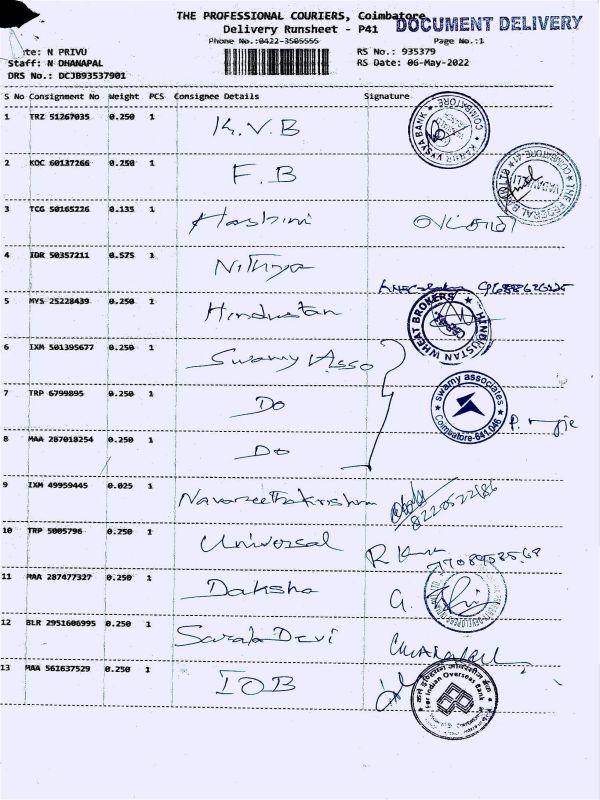 THE PROFESSIONAL COURIERS, Coimbatore
DOCUMENT DELIVERY
Delivery Runsheet - P41
Phone No.:0422-3505555
Page No.:1
te: N PRIVU
RS No.: 935379
Staff: N DHANAPAL
RS Date: 06-May-2022
DRS No.: DCJB93537901
S No Consignment No Weight PCS Consignee Details Signature
1 TRZ 51267035 0.250 1 K.V.B
KARUR VYSYA BANK ★ COIMBATORE
2 KOC 60137266 0.250 1 F.B
★ THE FEDERAL BANK LTD ★ COIMBATORE-41
3 TCG 50165226 0.135 1 Hashini
4 IDR 50357211 0.575 1 Nithya
5 MYS 25228439 0.250 1 Hindustan
★ HINDUSTAN WHEAT BROKERS
6 IXM 501395677 0.250 1 Swamy Asso
7 TRP 6799895 0.250 1 Do
swamy associates
Coimbatore-641 046
8 MAA 287018254 0.250 1 Do
9 IXM 49959445 0.025 1 Navaneethakrishnan
8220522686
10 TRP 5005796 0.250 1 Universal
11 MAA 287477327 0.250 1 Daksha
12 BLR 2951606995 0.250 1 Sarala Devi
13 MAA 561637529 0.250 1 IOB
For Indian Overseas Bank